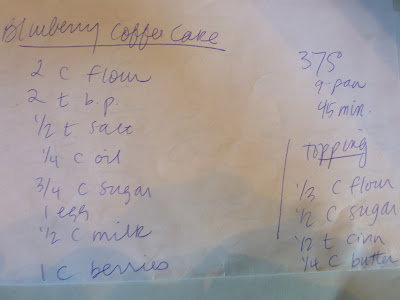 Blueberry Coffee Cake
2 c flour
2 t b.p.
1/2 t salt
1/4 c oil
3/4 c sugar
1 egg
1/2 c milk
1 c berries
375°
9. pan
45 min.
topping
1/3 c flour
1/2 c sugar
1/2 t cinn
1/4 c butter